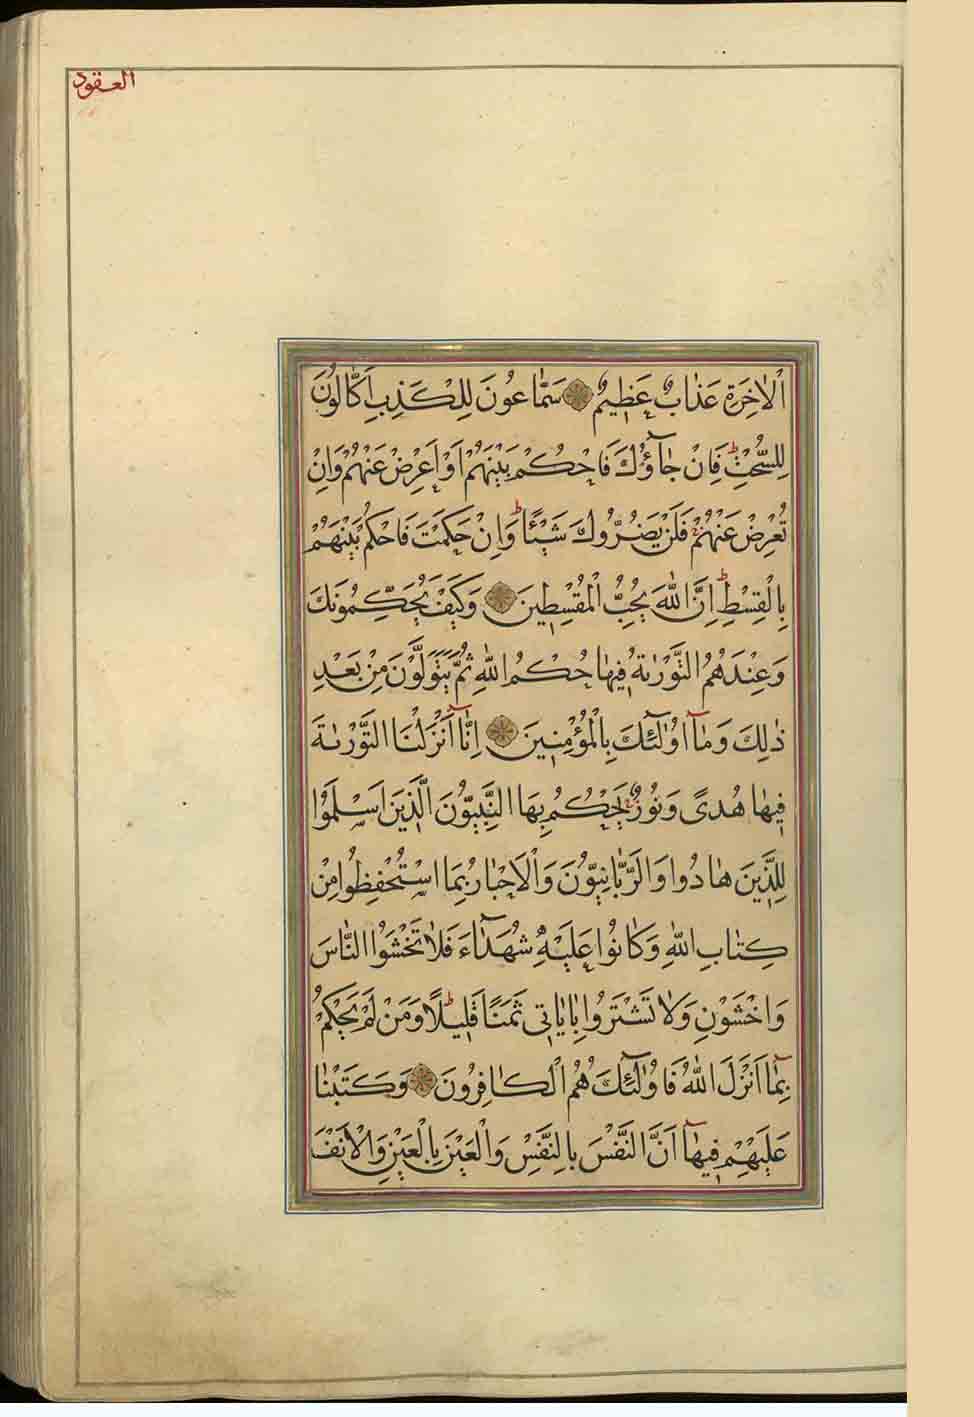 العقود
اْلاٰخِرَةِ عَذَابٌ عَظِيمٌ سَمَّاعُونَ لِلْكَذِبِ اَكَّالُونَ
لِلسُّحْتِ فَاِنْ جَآؤُكَ فَاحْكُمْ بَيْنَهُمْ اَوْ اَعْرِضْ عَنْهُمْ وَاِنْ
تُعْرِضْ عَنْهُمْ فَلَنْ يَضُرُّوكَ شَيْئًا وَاِنْ حَكَمْتَ فَاحْكُمْ بَيْنَهُمْ
بِالْقِسْطِ اِنَّ اللّٰهَ يُحِبُّ الْمُقْسِطِينَ وَكَيْفَ يُحَكِّمُونَكَ
وَعِنْدَهُمُ التَّوْرٰيةُ فِيهَا حُكْمُ اللّٰهِ ثُمَّ يَتَوَلَّوْنَ مِنْ بَعْدِ
ذٰلِكَ وَمَآ اُولٰٓئِكَ بِالْمُؤْمِنِينَ اِنَّآ اَنْزَلْنَا التَّوْرٰيةَ
فِيهَا هُدًى وَنُورٌ يَحْكُمُ بِهَا النَّبِيُّونَ الَّذِينَ اَسْلَمُوا
لِلَّذِينَ هَادُوا وَالرَّبَّانِيُّونَ وَالْاَحْبَارُ بِمَا اسْتُحْفِظُوا مِنْ
كِتَابِ اللّٰهِ وَكَانُوا عَلَيْهِ شُهَدَآءَ فَلَا تَخْشَوُا النَّاسَ
وَاخْشَوْنِ وَلَا تَشْتَرُوا بِاٰيَاتِى ثَمَنًا قَلِيلًا وَمَنْ لَمْ يَحْكُمْ
بِمَآ اَنْزَلَ اللّٰهُ فَاُولٰٓئِكَ هُمُ الْكَافِرُونَ وَكَتَبْنَا
عَلَيْهِمْ فِيهَآ اَنَّ النَّفْسَ بِالنَّفْسِ وَالْعَيْنَ بِالْعَيْنِ وَالْاَنْفَ